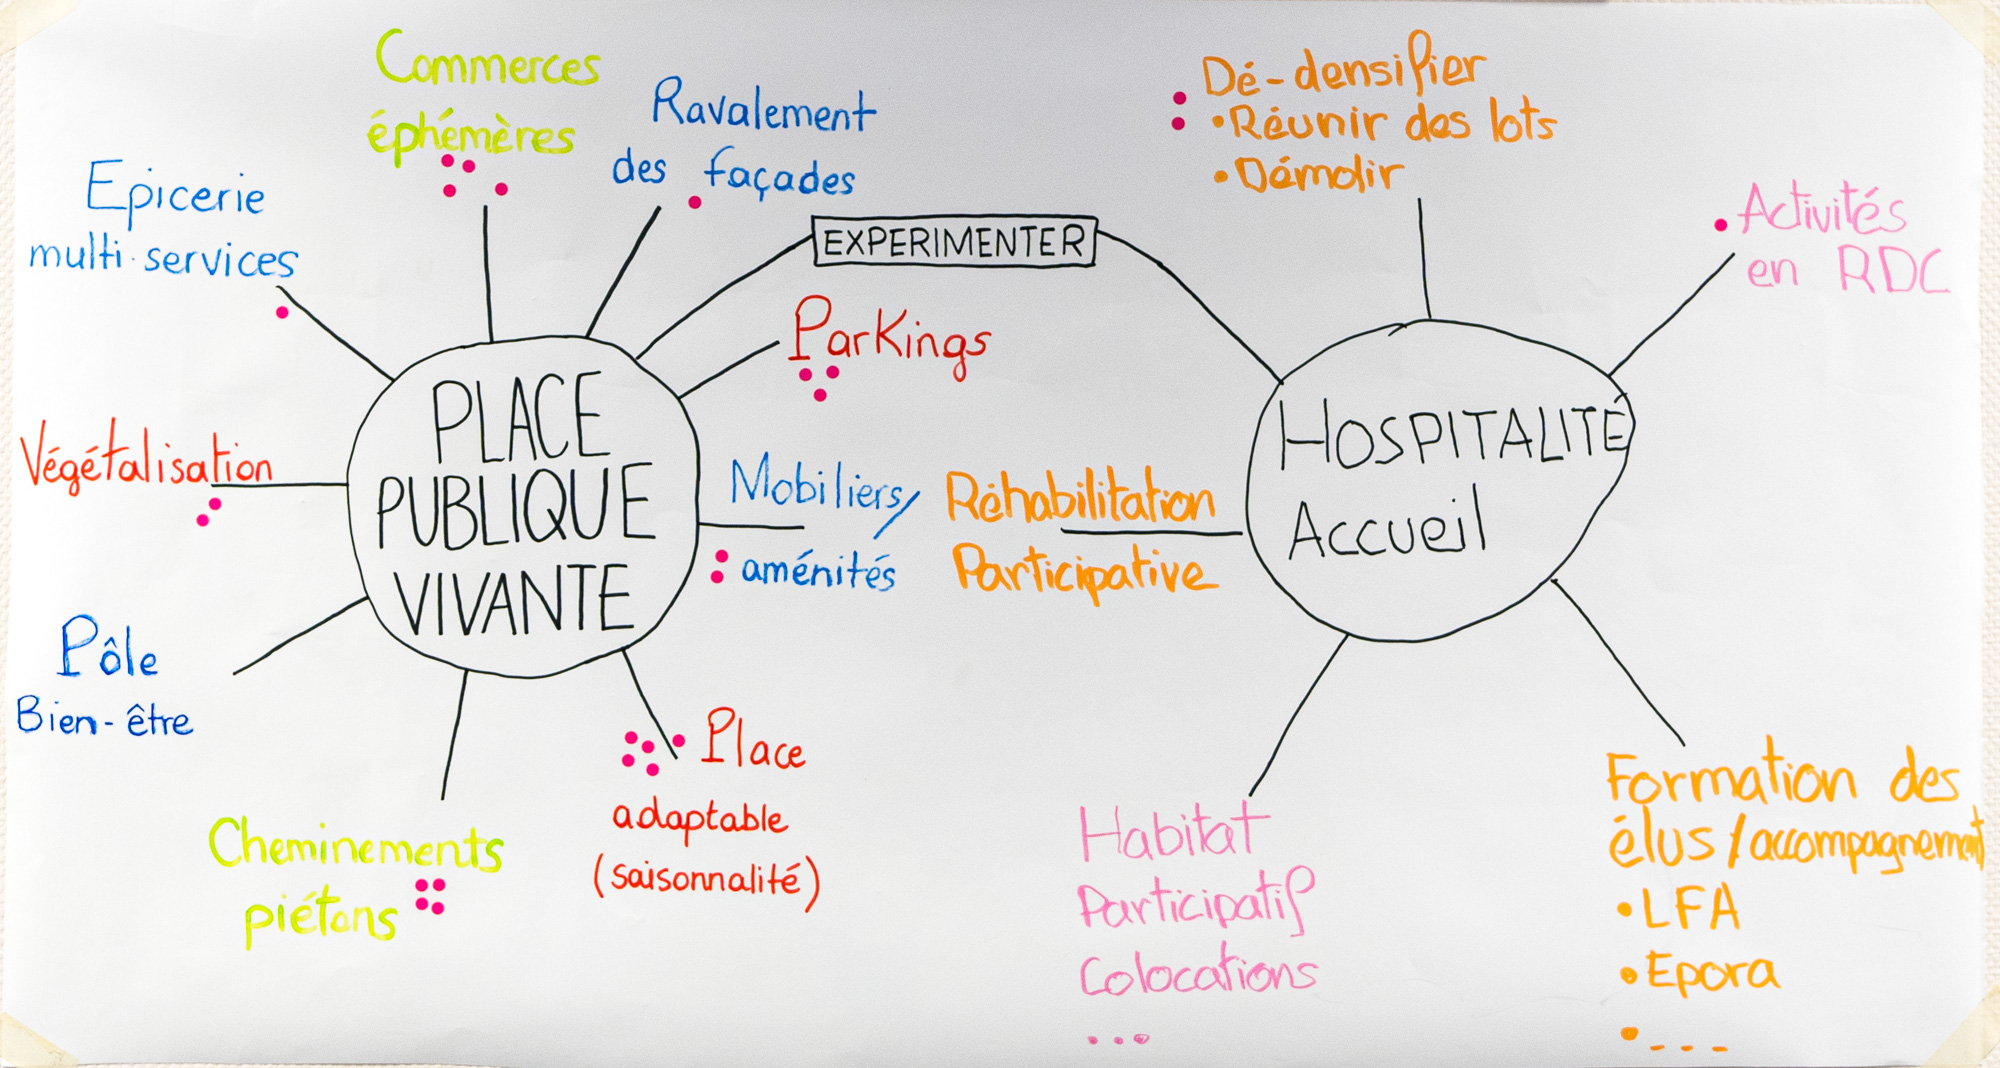 Commerces
éphémères
Ravalement
des façades
Epicerie
multi-services
EXPERIMENTER
Parkings
Végétalisation
PLACE
PUBLIQUE
VIVANTE
Mobiliers/
aménités
Pôle
Bien-être
Cheminements
piétons
Place
adaptable
(saisonnalité)
Dé-densifier
• Réunir des lots
• Démolir
Activités
en RDC
HOSPITALITÉ
Accueil
Réhabilitation
Participative
Habitat
Participatif
Colocations
...
Formation des
élus/accompagnement
• LFA
• Epora
• ---